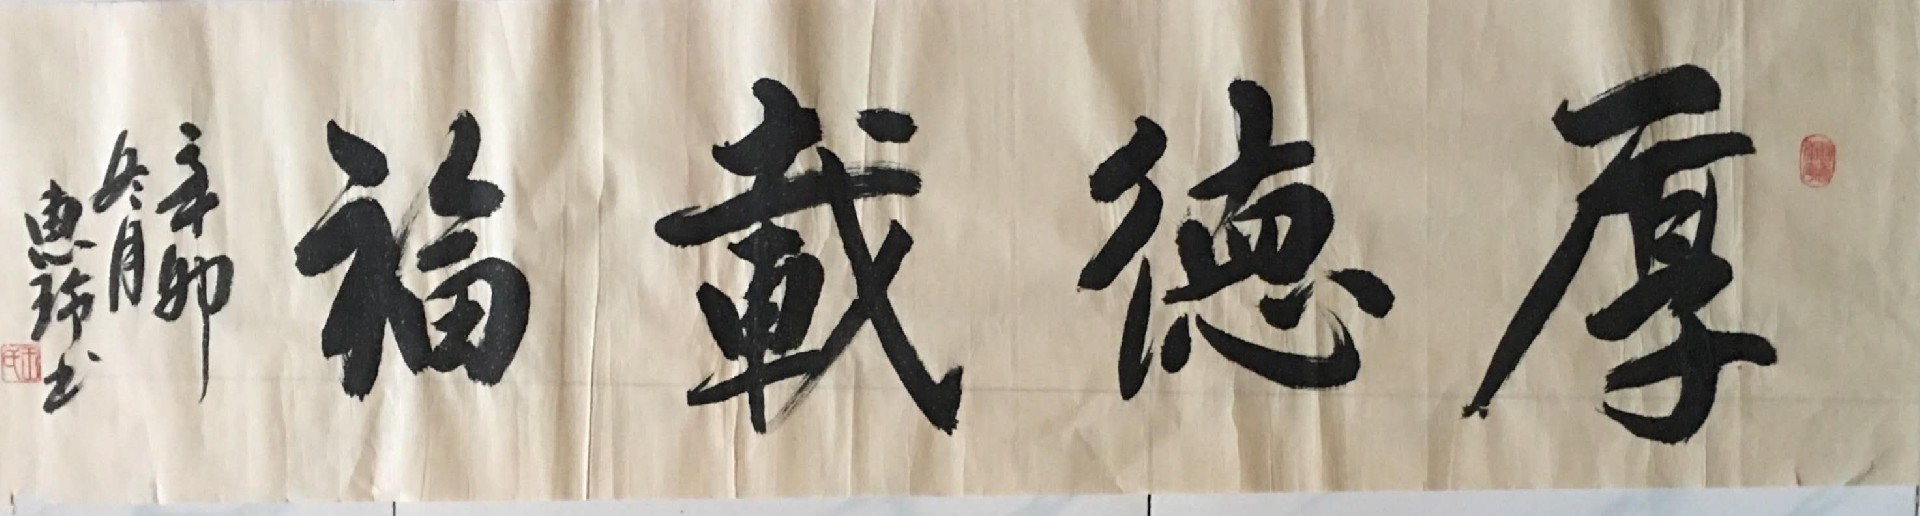 厚德載福
辛卯
冬月
惠玲书